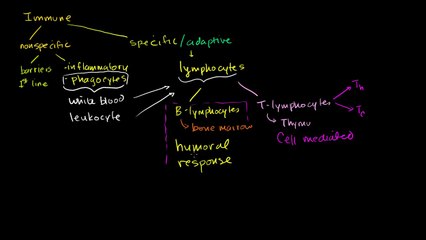 Immune
nonspecific
specific/adaptive
barriers
1st line
- inflammatory
- phagocytes
lymphocytes
white blood
leukocyte
B-lymphocytes
bone marrow
humoral
response
T-lymphocytes
Thymu
Cell mediated
Th
Tc